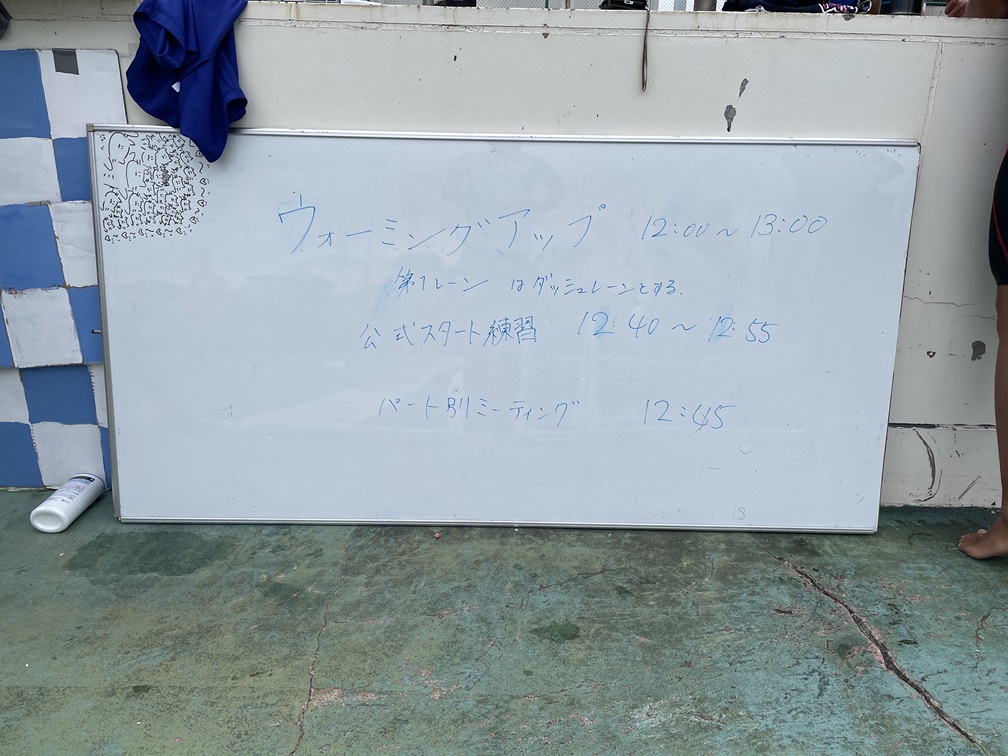 ウォーミングアップ 12:00～13:00
第1レーン はダッシュレーンとする.
公式スタート練習 12:40～12:55
パート別ミーティング 12:45